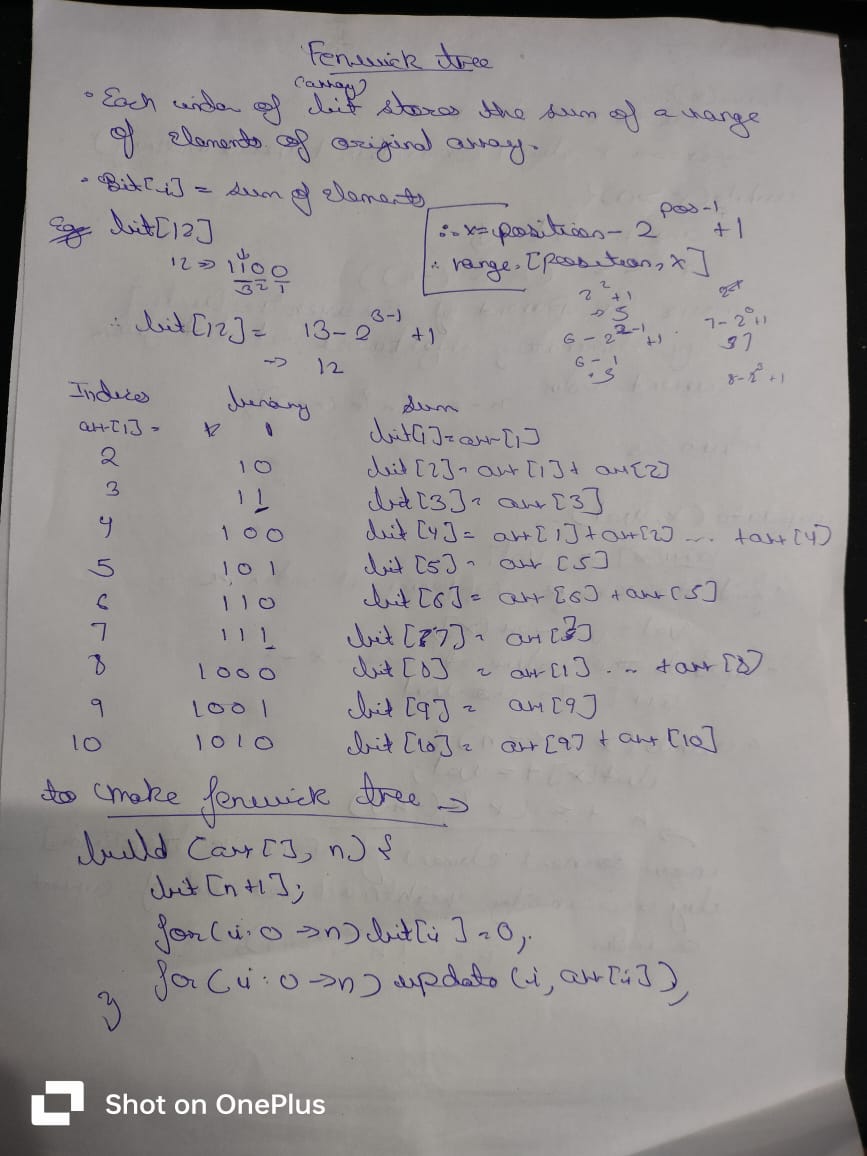 Fenwick tree
(array)
• Each index of bit stores the sum of a range
of elements of original array.
• Bit[i] = sum of elements
Eg bit[12]
12 ⇒ 1100
3 2 1
∴ x = position - 2^pos-1 + 1
∴ range. [position, x]
∴ bit[12] = 13 - 2^3-1 + 1
→ 12
2^2 + 1
→ 5
6 - 2^2-1 + 1
6 - 1
. 5
7 - 2^0 + 1
8 - 2^3 + 1
Indices binary sum
arr[1] = 1 bit[1] = arr[1]
2 10 bit[2] = arr[1] + arr[2]
3 11 bit[3] = arr[3]
4 100 bit[4] = arr[1] + arr[2] ... + arr[4]
5 101 bit[5] = arr[5]
6 110 bit[6] = arr[6] + arr[5]
7 111 bit[7] = arr[7]
8 1000 bit[8] = arr[1] ... + arr[8]
9 1001 bit[9] = arr[9]
10 1010 bit[10] = arr[9] + arr[10]
to make fenwick tree →
build (arr[], n) {
bit[n+1];
for(i: 0 → n) bit[i] = 0;
for(i: 0 → n) update(i, arr[i]),
}
Shot on OnePlus